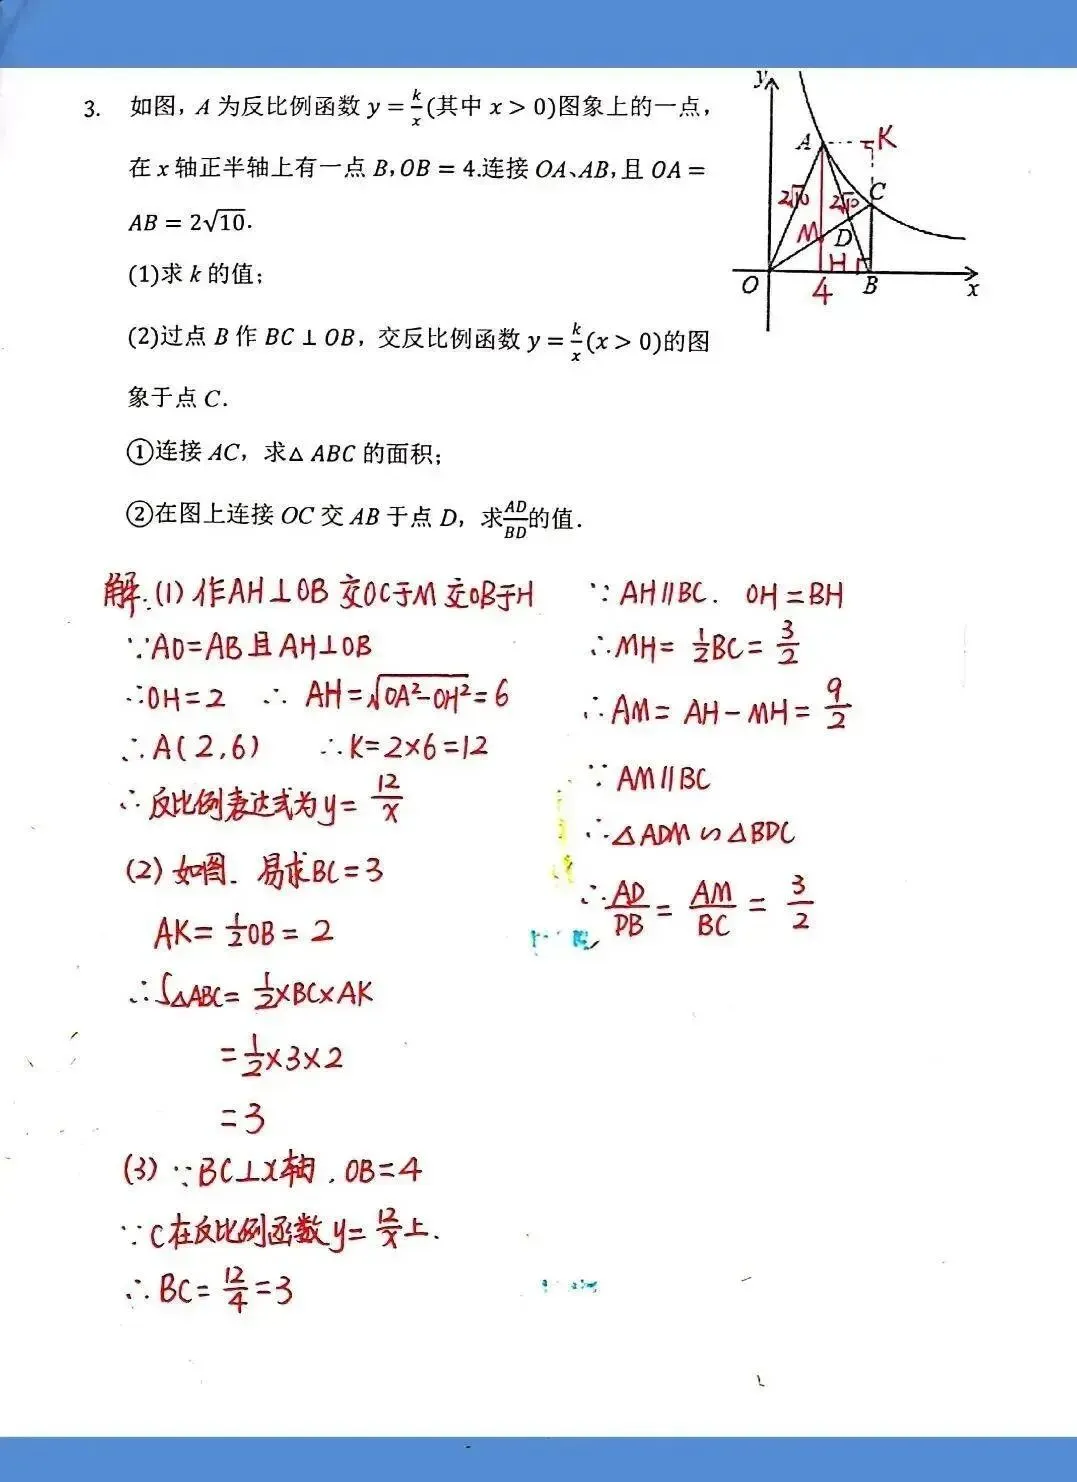 3. 如图，A 为反比例函数 y = k/x (其中 x > 0)图象上的一点，
在 x 轴正半轴上有一点 B，OB = 4.连接 OA、AB，且 OA =
AB = 2√10.
(1)求 k 的值；
(2)过点 B 作 BC ⊥ OB，交反比例函数 y = k/x (x > 0)的图
象于点 C.
①连接 AC，求△ ABC 的面积；
②在图上连接 OC 交 AB 于点 D，求 AD/BD 的值.
y
A
K
2√10
2√10
C
M
D
H
O
4
B
x
解:(1) 作AH⊥OB 交OC于M 交OB于H
∵AO=AB 且 AH⊥OB
∴OH=2 ∴ AH=√OA²-OH²=6
∴A(2,6) ∴K=2×6=12
∴反比例表达式为y= 12/x
(2) 如图. 易求BC=3
AK= 1/2 OB = 2
∴S△ABC= 1/2×BC×AK
= 1/2×3×2
=3
(3) ∵BC⊥X轴, OB=4
∵C在反比例函数y= 12/x 上.
∴BC= 12/4 =3
∵ AH∥BC. OH=BH
∴MH= 1/2 BC= 3/2
∴AM= AH-MH= 9/2
∵ AM∥BC
∴△ADM∽△BDC
∴ AD/DB = AM/BC = 3/2